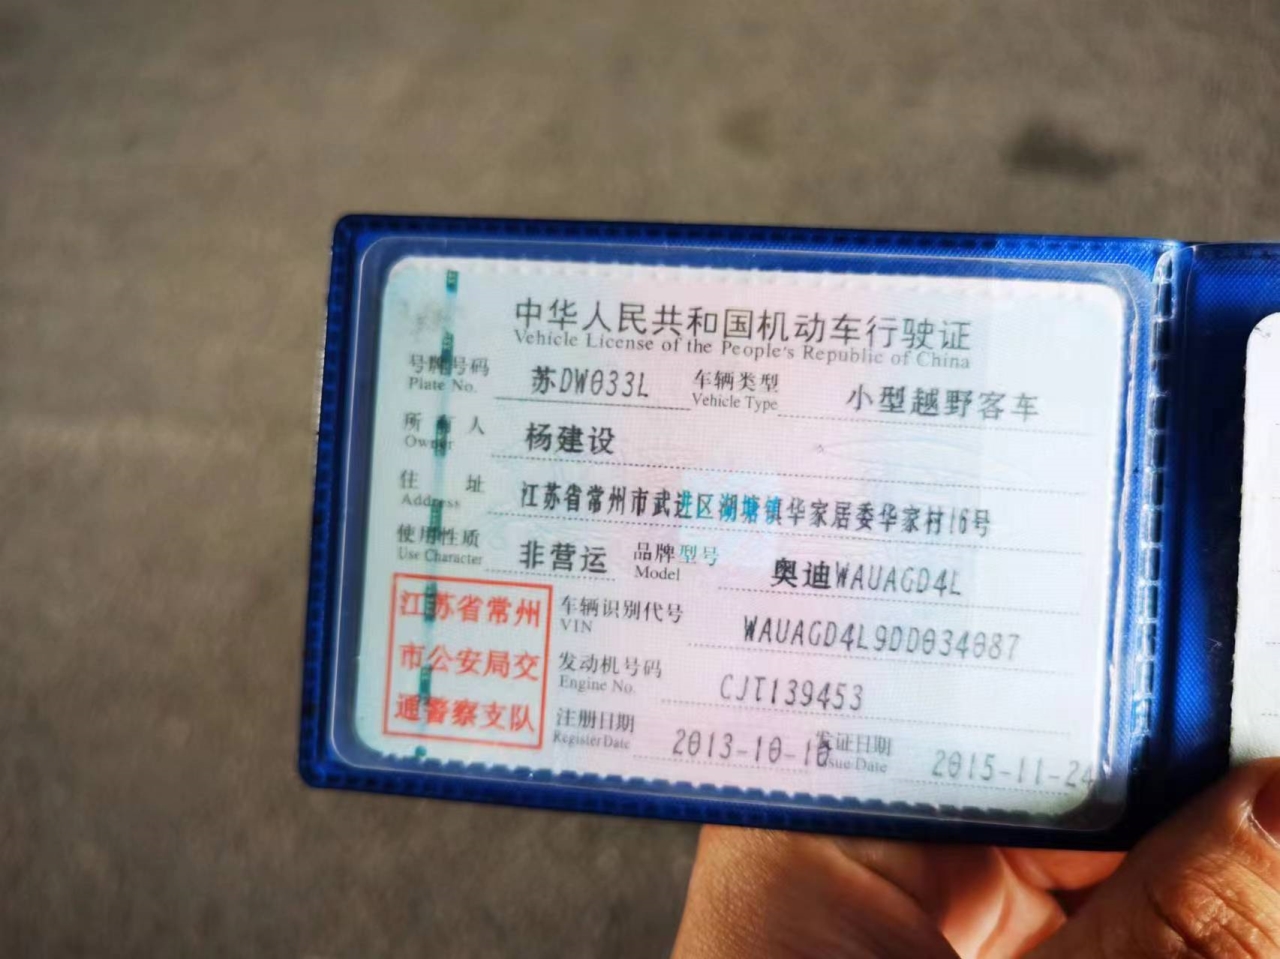 中华人民共和国机动车行驶证
Vehicle License of the People's Republic of China
号牌号码 苏DW033L 车辆类型 小型越野客车
Plate No. Vehicle Type
所有人 杨建设
Owner
住址 江苏省常州市武进区湖塘镇华家居委华家村16号
Address
使用性质 非营运 品牌型号 奥迪WAUAGD4L
Use Character Model
江苏省常州
市公安局交
通警察支队
车辆识别代号 WAUAGD4L9DD034087
VIN
发动机号码 CJT139453
Engine No.
注册日期 2013-10-10 发证日期 2015-11-24
Register Date Issue Date